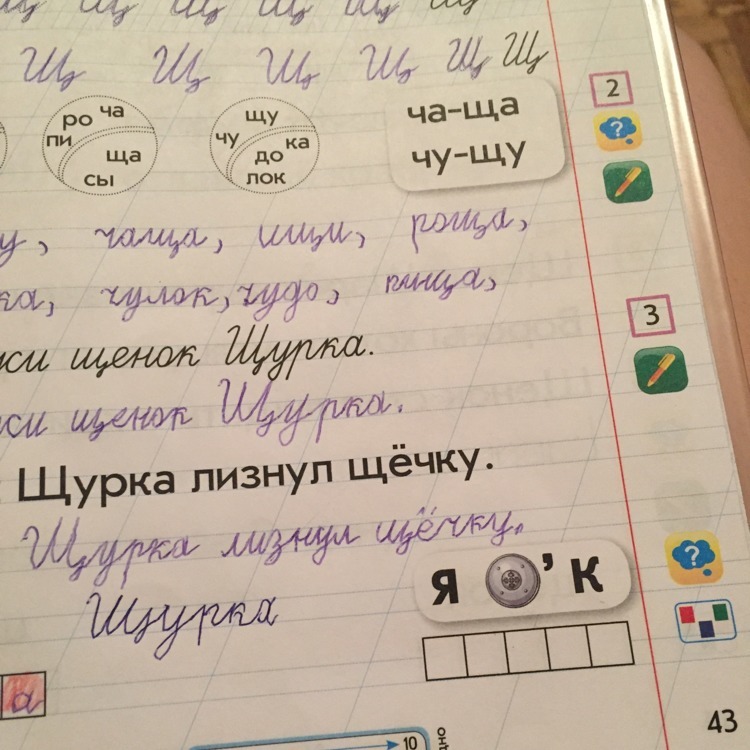 Щ Щ Щ Щ Щ Щ
Щ Щ Щ Щ Щ Щ
2
ро ча
пи
ща
сы
щу
чу
ка
до
лок
ча-ща
чу-щу
у, чаща, ищи, роща,
ка, чулок, чудо, пища,
3
си щенок Щурка.
си щенок Щурка.
Щурка лизнул щёчку.
Щурка лизнул щёчку.
Щурка
я ’ к
а
10
43